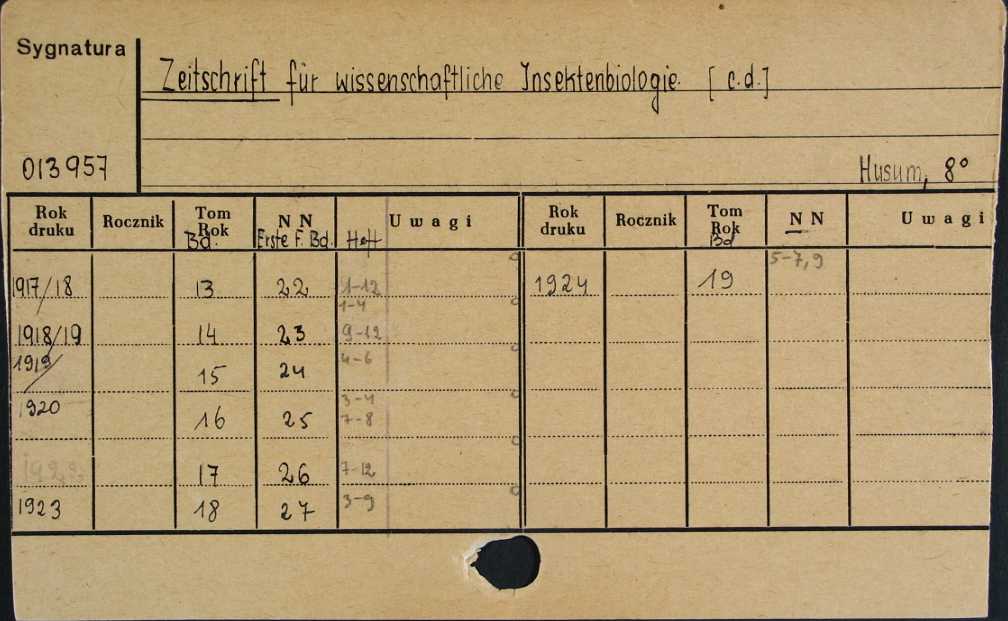 Sygnatura
Zeitschrift für wissenschaftliche Insektenbiologie. [c.d.]
013957
Husum, 8°
Rok druku Rocznik Tom Rok Bd. N N Erste F. Bd. Heft Uwagi Rok druku Rocznik Tom Rok Bd N N Uwagi
1917/18 13 22 1-12 1924 19 5-7,9
1-4
1918/19 14 23 9-12
1919/ 15 24 4-6
1920 16 25 3-4
7-8
17 26 7-12
1923 18 27 3-9